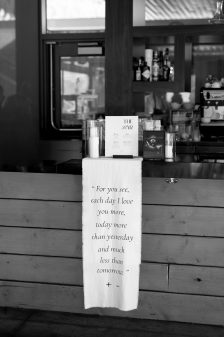 THE
BAR
“ For you see,
each day I love
you more,
today more
than yesterday
and much
less than
tomorrow. ”